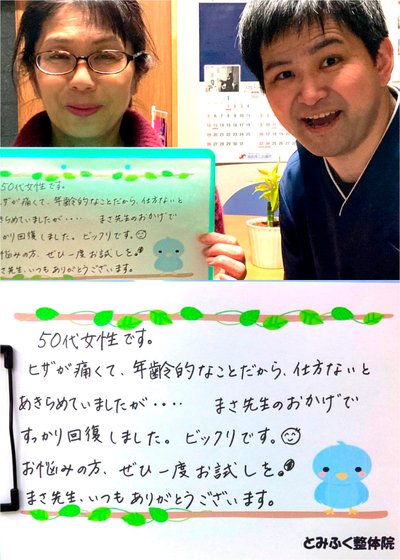 50代女性です。
ヒザが痛くて、年齢的なことだから、仕方ないと
きらめていましたが・・・・ まさ先生のおかげで
かり回復しました。ビックリです。
悩みの方、ぜひ一度お試しを。
さ先生、いつもありがとうございます。
50代女性です。
ヒザが痛くて、年齢的なことだから、仕方ないと
あきらめていましたが・・・・ まさ先生のおかげで
すっかり回復しました。ビックリです。
お悩みの方、ぜひ一度お試しを。
まさ先生、いつもありがとうございます。
とみふく整体院